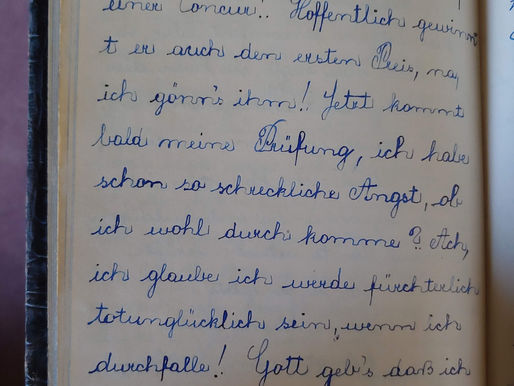 einer Concur!. Hoffentlich gewinn
t er auch den ersten Preis, na,
ich gönn's ihm! Jetzt kommt
bald meine Prüfung, ich habe
schon so schreckliche Angst, ob
ich wohl durch komme? Ach,
ich glaube ich werde fürchterlich
totunglücklich sein, wenn ich
durchfalle! Gott geb's daß ich